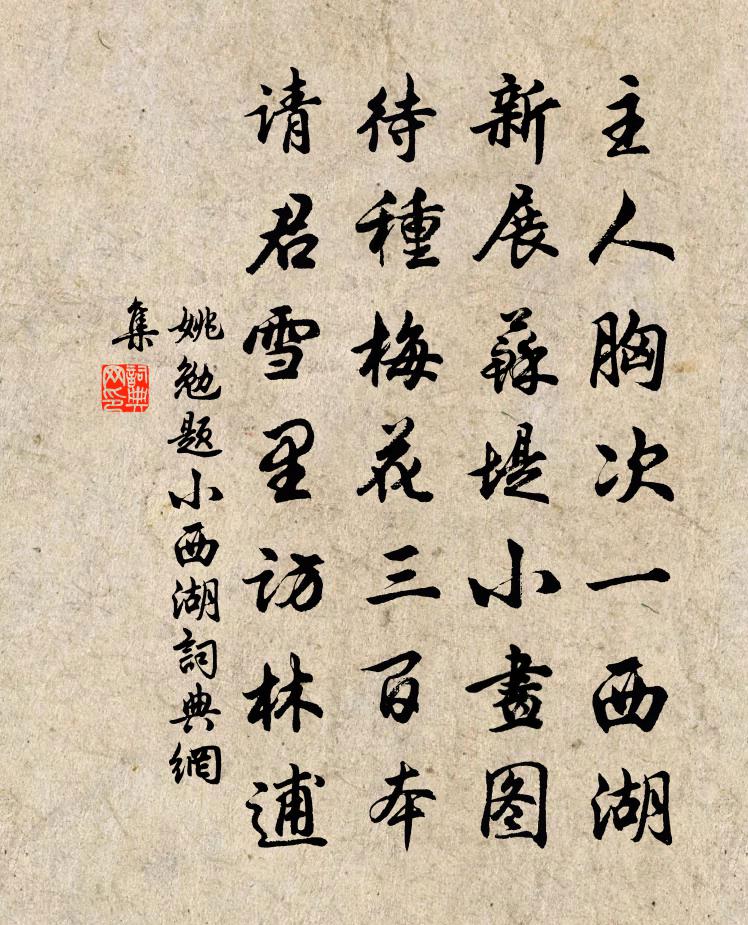 主人胸次一西湖
新展蘇堤小畫图
待種梅花三百本
请君雪里访林逋
姚勉题小西湖詞典網
集
詞典网印